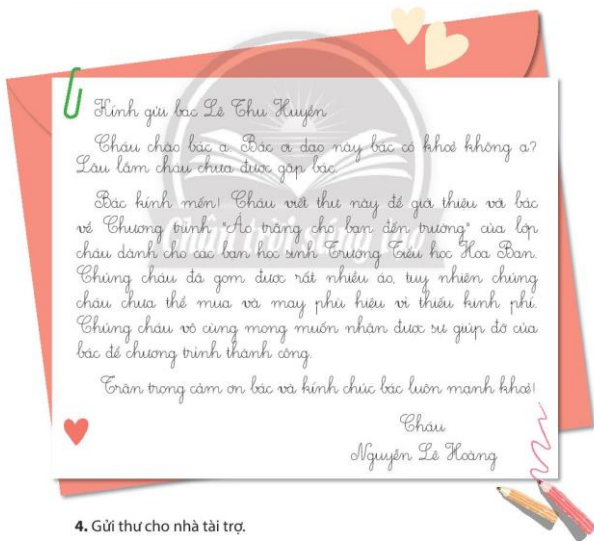 Kính gửi bác Lê Thu Huyền
Cháu chào bác ạ. Bác ơi dạo này bác có khoẻ không ạ?
Lâu lắm cháu chưa được gặp bác.
Bác kính mến! Cháu viết thư này để giới thiệu với bác
về Chương trình "Áo trắng cho bạn đến trường" của lớp
cháu dành cho các bạn học sinh Trường Tiểu học Hoa Ban.
Chúng cháu đã gom được rất nhiều áo, tuy nhiên chúng
cháu chưa thể mua và may phù hiệu vì thiếu kinh phí.
Chúng cháu vô cùng mong muốn nhận được sự giúp đỡ của
bác để chương trình thành công.
Trân trọng cảm ơn bác và kính chúc bác luôn mạnh khoẻ!
Cháu
Nguyễn Lê Hoàng
Chân trời sáng tạo
4. Gửi thư cho nhà tài trợ.